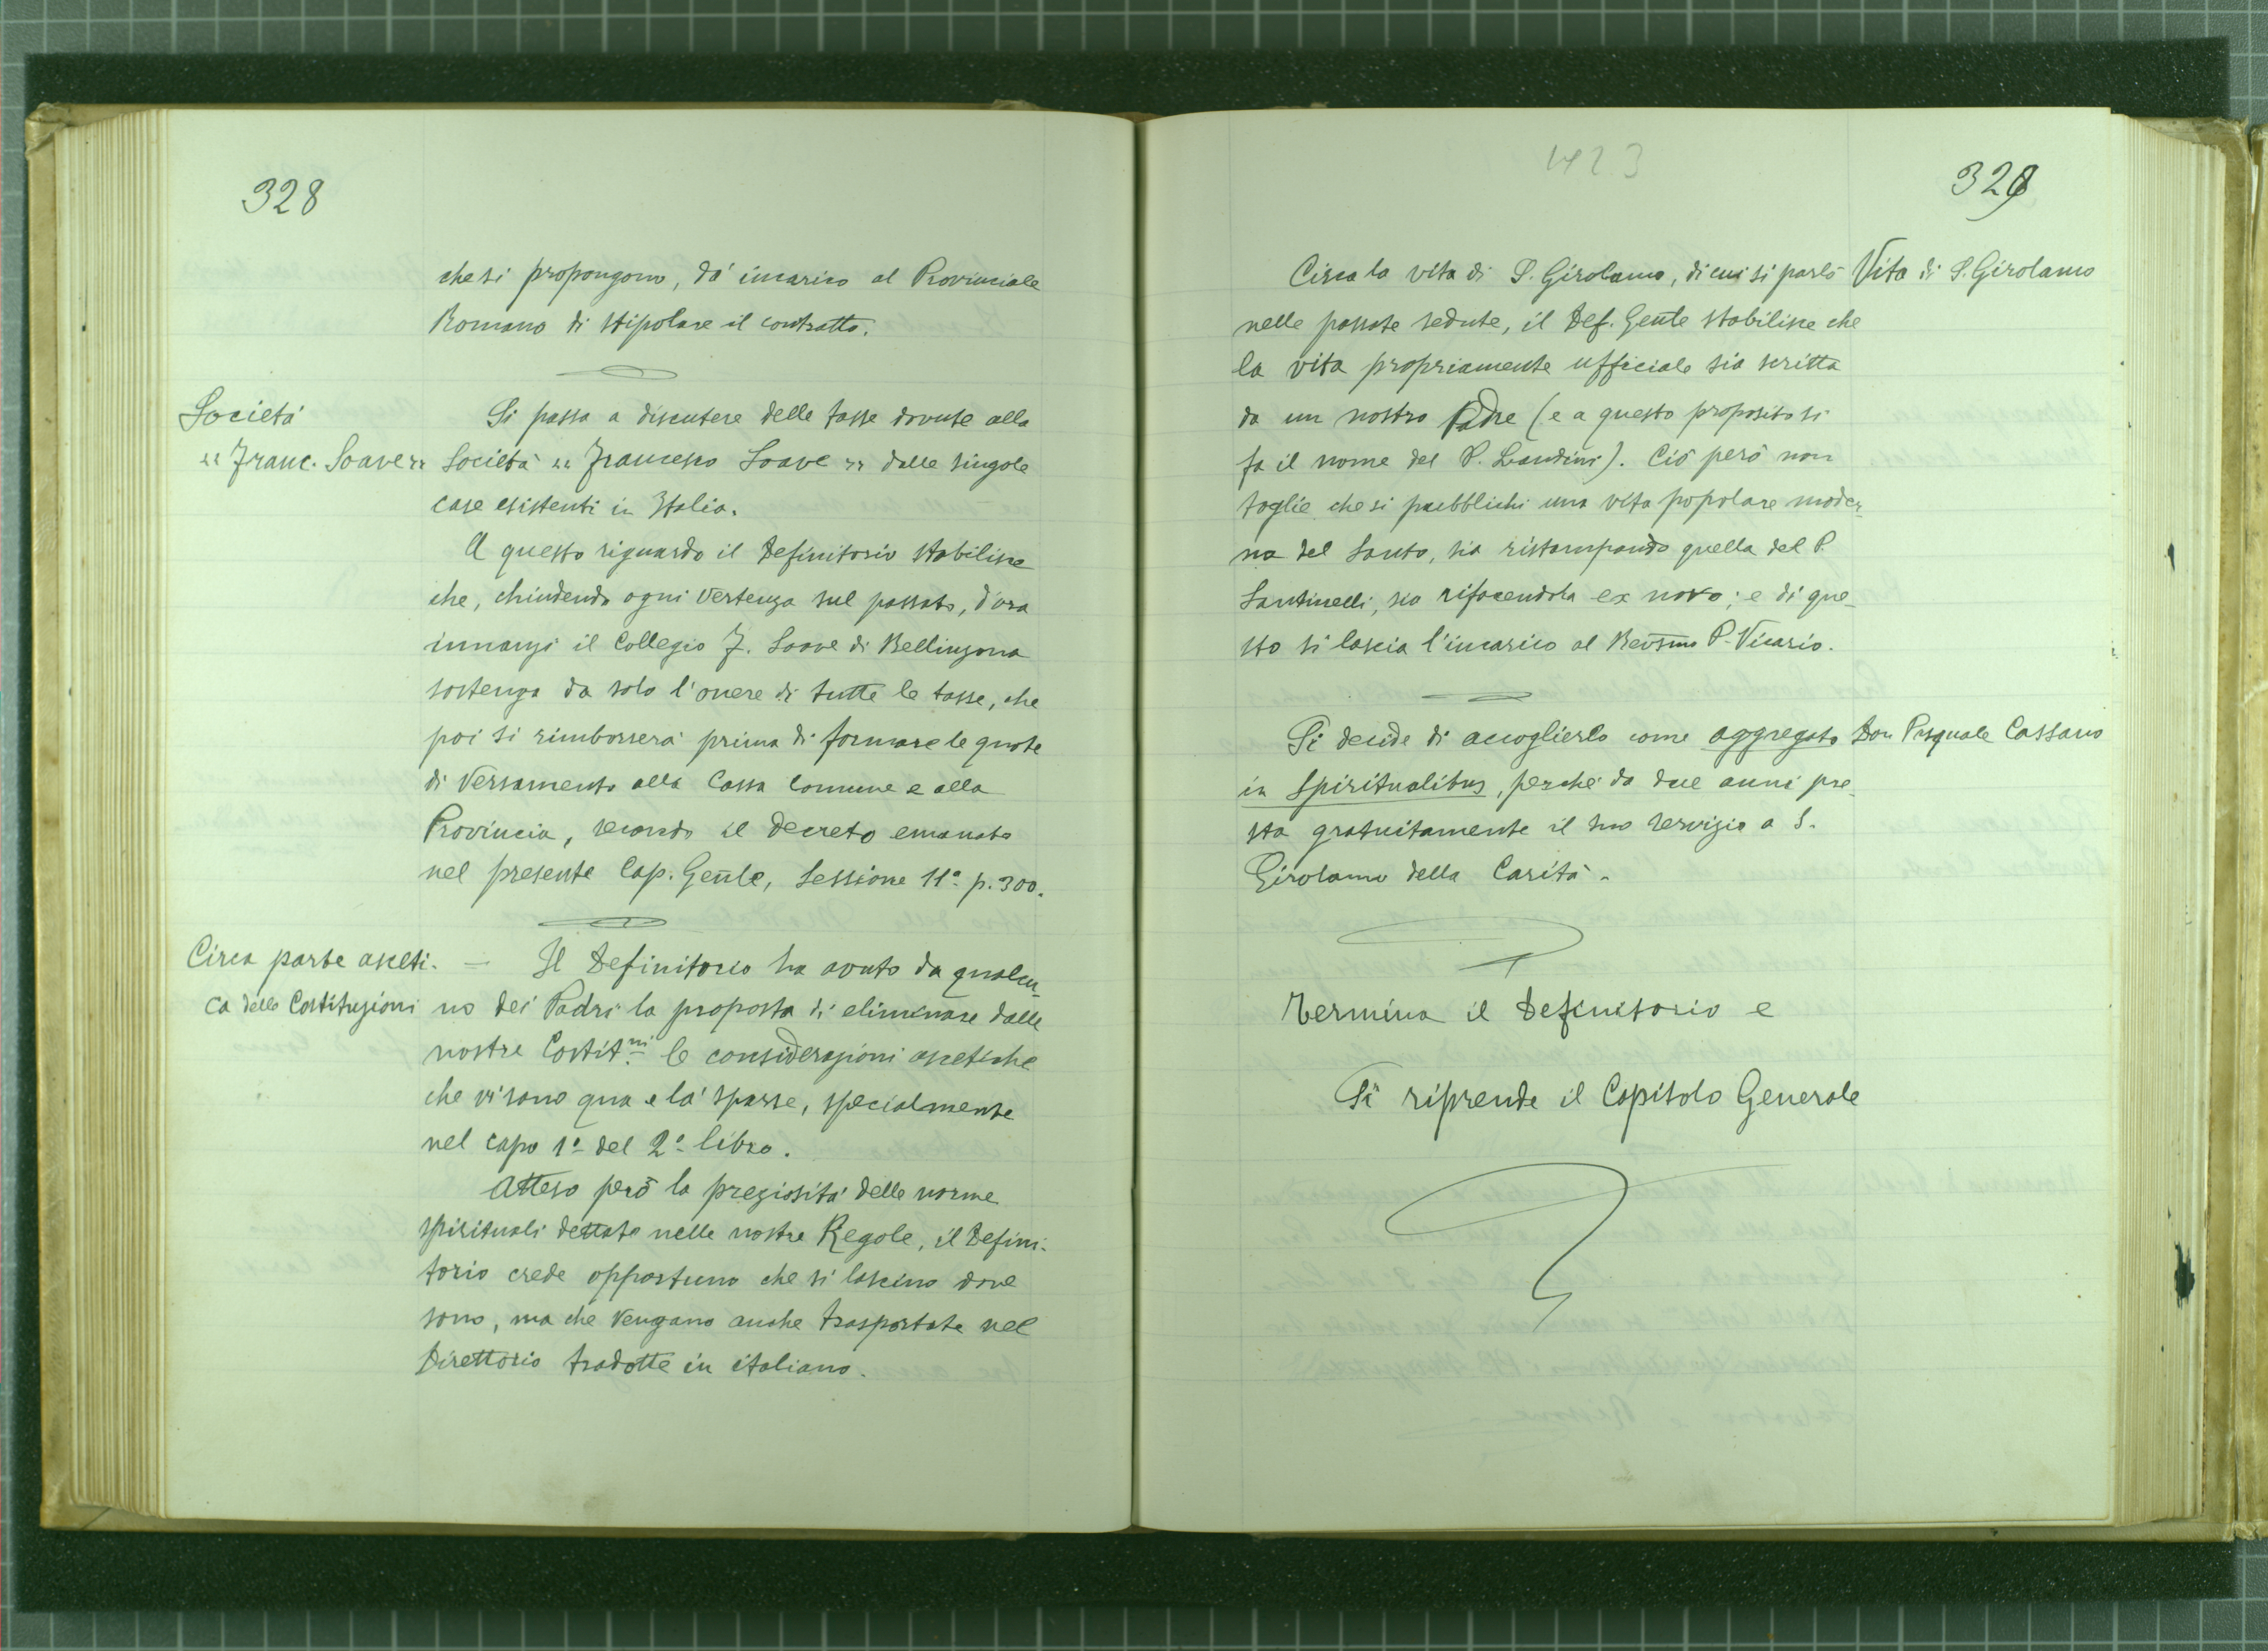 328
che si propongono, dà incarico al Provinciale
Romano di stipolare il contratto.
Società
« Franc. Soave »
Si passa a discutere delle tasse dovute alla
Società « Francesco Soave » dalle singole
case esistenti in Italia.
A questo riguardo il Definitorio stabilisce
che, chiudendo ogni vertenza sul passato, d'ora
innanzi il Collegio F. Soave di Bellinzona
sostenga da solo l'onere di tutte le tasse, che
poi si rimborserà prima di formare le quote
di versamento alla Cassa Comune e alla
Provincia, secondo il decreto emanato
nel presente Cap. Gen̄le, Sessione 11ª p. 300.
Circa parte asceti-
ca delle Costituzioni
— Il Definitorio ha avuto da qualcu-
no dei Padri la proposta di eliminare dalle
nostre Costit.ni le considerazioni ascetiche
che vi sono qua e là sparse, specialmente
nel capo 1º del 2º libro.
Atteso però la preziosità delle norme
spirituali dettate nelle nostre Regole, il Defini-
torio crede opportuno che si lascino dove
sono, ma che vengano anche trasportate nel
Direttorio tradotte in italiano.
423
329
Circa la vita di S. Girolamo, di cui si parlò
Vita di S. Girolamo
nelle passate sedute, il Def. Gen̄le stabilisce che
la vita propriamente ufficiale sia scritta
da un nostro Padre (e a questo proposito si
fa il nome del P. Landini). Ciò però non
toglie che si pubblichi una vita popolare moder-
na del Santo, sia ristampando quella del P.
Santinelli, sia rifacendola ex novo; e di que-
sto si lascia l'incarico al Rev̄smo P. Vicario.
Si decide di accoglierlo come aggregato
Don Pasquale Cassano
in spiritualibus, perchè da due anni pre-
sta gratuitamente il suo servizio a S.
Girolamo della Carità.
Termina il Definitorio e
Si riprende il Capitolo Generale